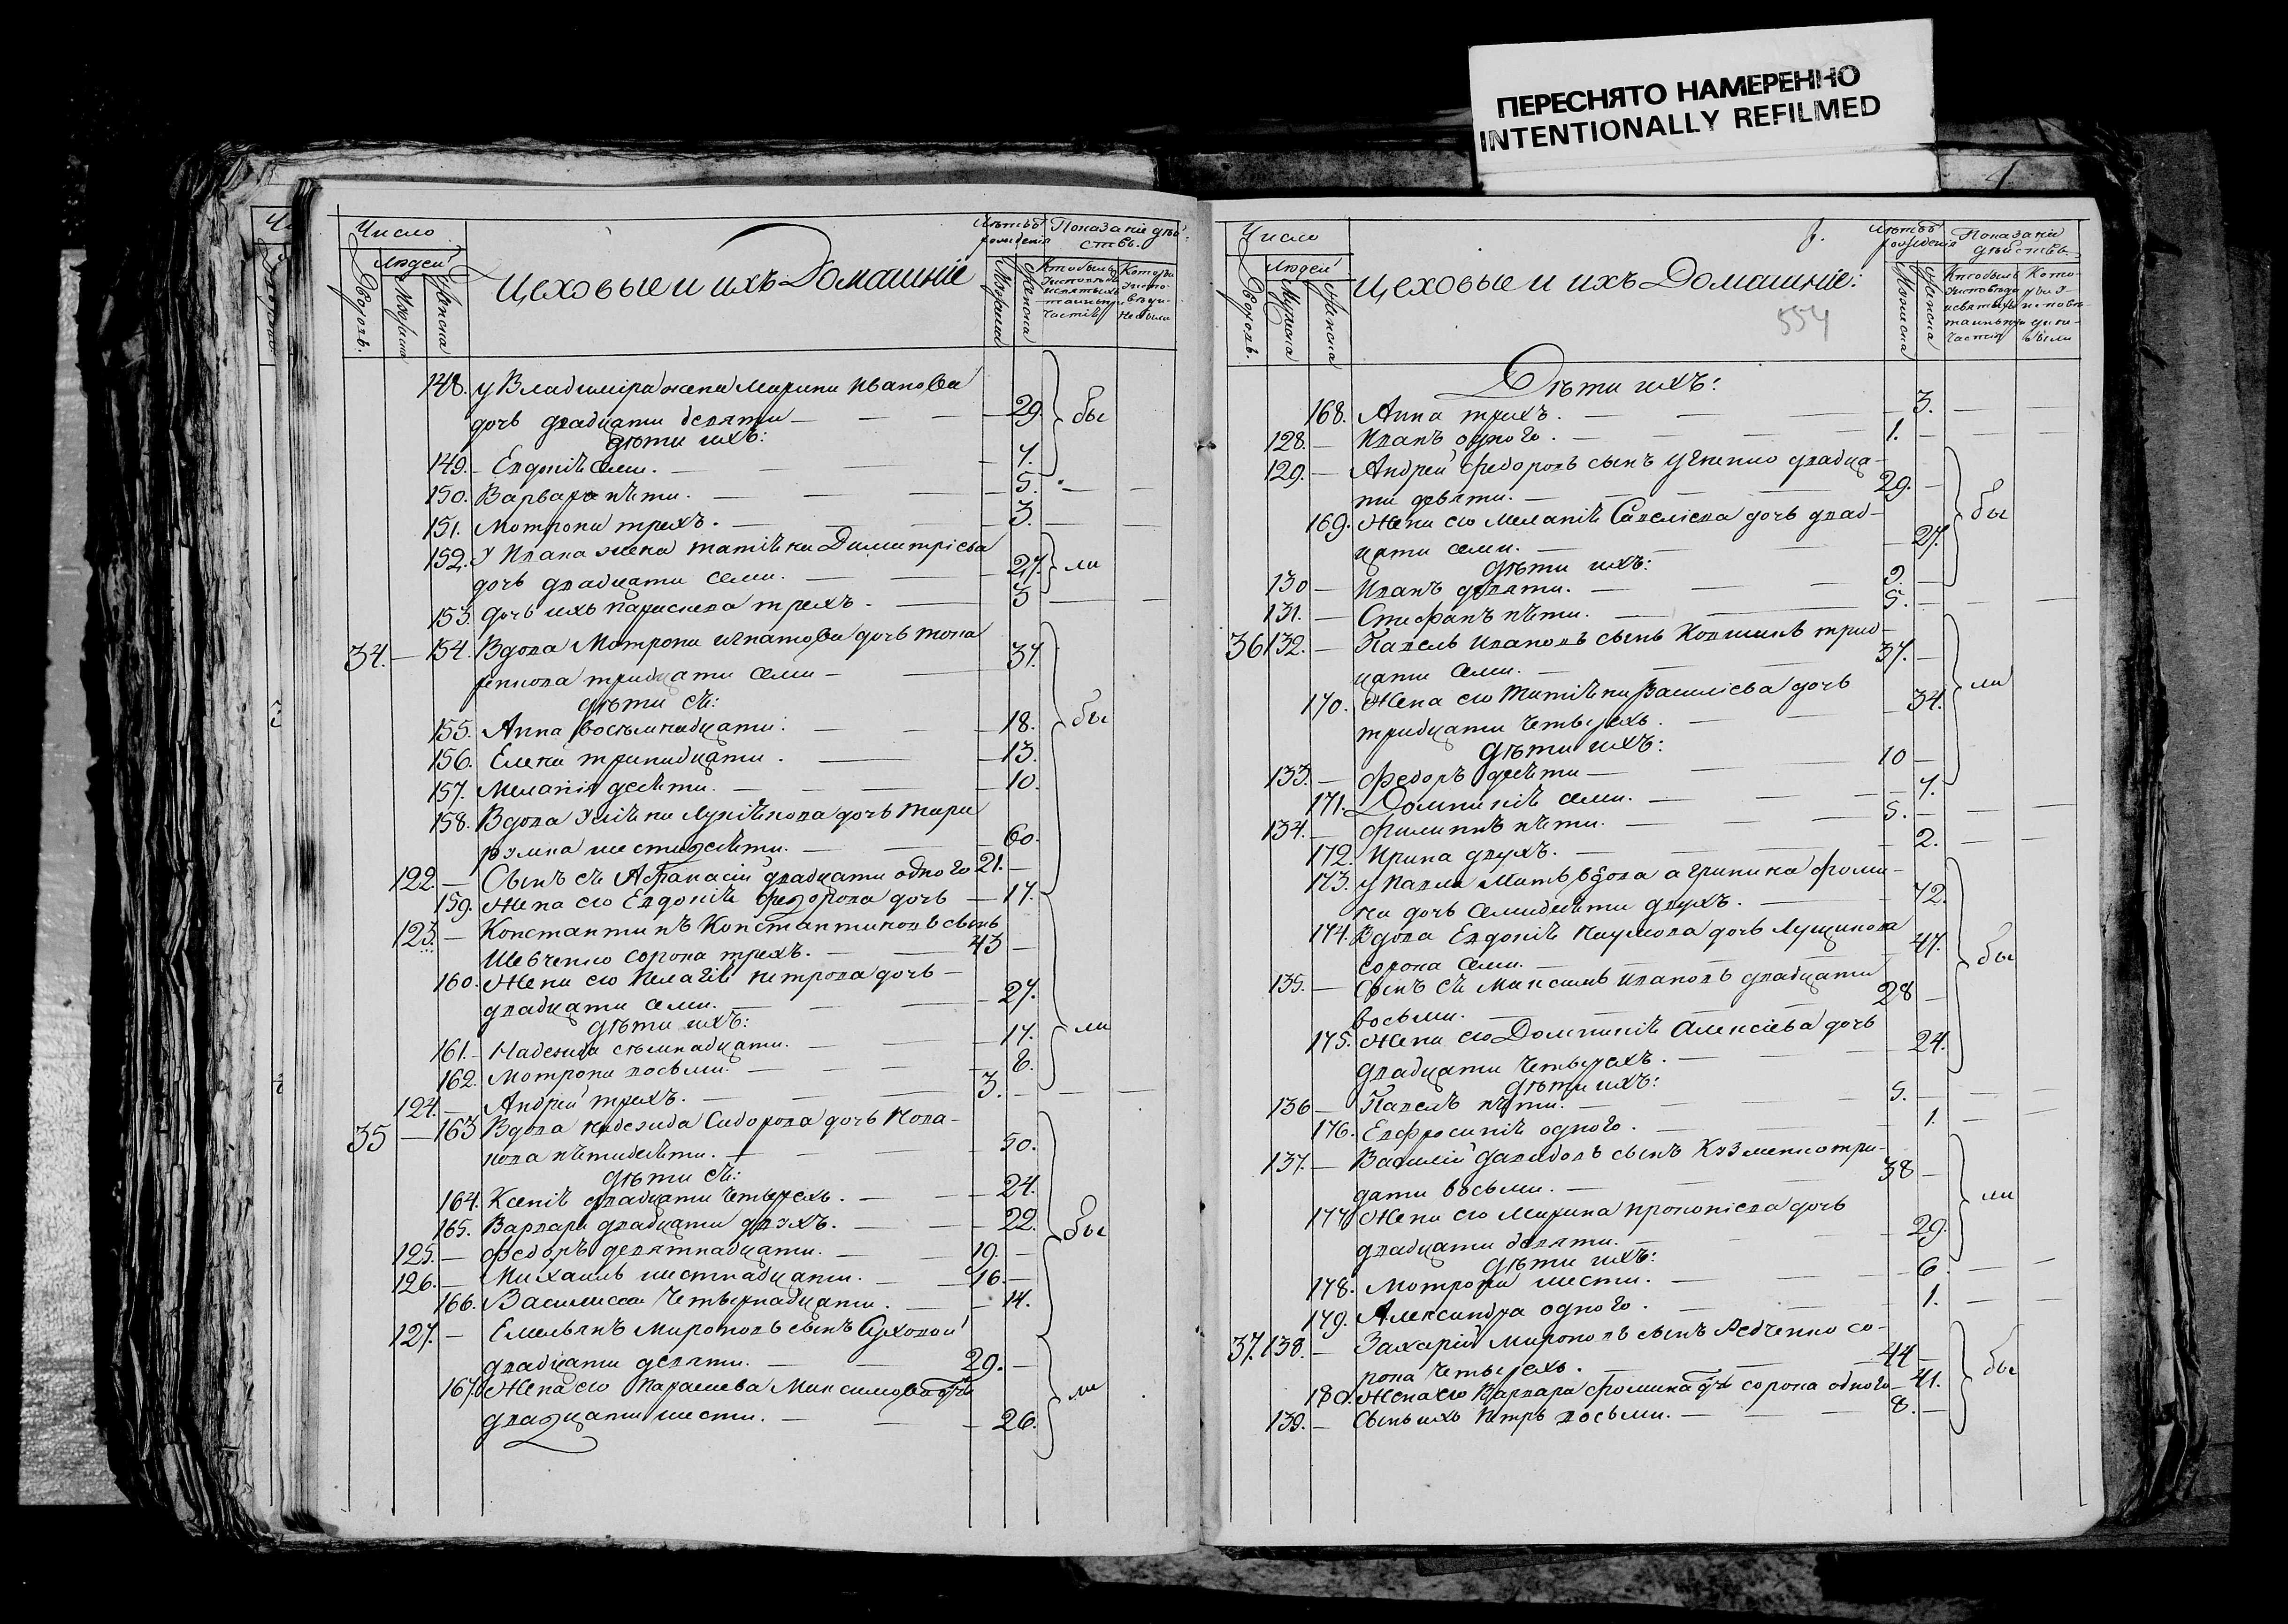 ПЕРЕСНЯТО НАМЕРЕННО
INTENTIONALLY REFILMED
Число
Людей
Дворовъ.
Мужеска
Женска
Цеховые и ихъ Домашніе
Лѣтъ отъ рожденія
Мужеска
Женска
Показаніе дѣйствъ.
148. у Владиміра жена Марина Иванова
дочь двадцати девяти — 29. бы
дѣти ихъ:
149. Евдокія семи. — 7.
150. Варвара пяти. — 5.
151. Мотрона трехъ. — 3.
152. У Ивана жена Татіяна Димитріева
дочь двадцати семи. — 27. ли
153. дочь ихъ Параскева трехъ. — 3
34. — 154. Вдова Мотрона Игнатова дочь
тридцати семи — 37.
дѣти ея:
155. Анна восемнадцати. — 18. бы
156. Елена тринадцати. — 13.
157. Меланія десяти. — 10.
158. Вдова Уліяна Лукіянова дочь
шестидесяти. — 60.
122. — Сынъ ея Афанасій двадцати одного 21. —
159. Жена его Евдокія Федорова дочь — 17.
123. — Константинъ Константиновъ сынъ
Шевченко сорока трехъ. — 43 —
160. Жена его Пелагія Петрова дочь —
двадцати семи. — 27.
дѣти ихъ:
161. Надежда семнадцати. — 17. ли
162. Мотрона восьми. — 8.
124. — Андрей трехъ. — 3. —
35 — 163 Вдова Надежда Сидорова дочь
пятидесяти. — 50.
дѣти ея:
164. Ксенія двадцати четырехъ. — 24.
165. Варвара двадцати двухъ. — 22. бы
125. — Федоръ девятнадцати. — 19. —
126. — Михаилъ шестнадцати. — 16. —
166. Василисса четырнадцати. — 14.
127. — Емельянъ Мироновъ сынъ Суховой
двадцати девяти. — 29. —
167. Жена его Параскева Максимова дочь ли
двадцати шести. — 26.
Число
Людей
Дворовъ.
Мужеска
Женска
Цеховые и ихъ Домашніе:
554
Лѣтъ отъ рожденія
Мужеска
Женска
Показаніе дѣйствъ.
Дѣти ихъ:
168. Анна трехъ. — 3. —
128. — Иванъ одного. — 1. —
129. — Андрей Федоровъ сынъ двадца-
ти девяти. — 29. —
169. Жена его Меланія Савеліева дочь двад- бы
цати семи. — 27.
дѣти ихъ:
130 — Иванъ девяти. — 9. —
131. — Стефанъ пяти. — 5. —
36 132. — Павелъ Ивановъ сынъ трид-
цати семи. — 37. —
170. Жена его Татіяна Василіева дочь ли
тридцати четырехъ. — 34.
дѣти ихъ:
133. — Федоръ десяти — 10 —
171. Домникія семи. — 7.
134. — Филиппъ пяти. — 5. —
172. Ирина двухъ. — 2.
173. у Павла мать вдова Агрипина Фоми-
на дочь семидесяти двухъ. — 72.
174. Вдова Евдокія Наумова дочь Лущинова
сорока семи. — 47. бы
135. — Сынъ ея Максимъ Ивановъ двадцати
восьми. — 28 —
175. Жена его Домникія Алексіева дочь
двадцати четырехъ. — 24.
дѣти ихъ:
136 — Павелъ пяти. — 5. —
176. Евфросинія одного. — 1.
137. — Василій Давидовъ сынъ Кузменко три-
дцати восьми. — 38 —
177. Жена его Марина Прокопіева дочь ли
двадцати девяти. — 29.
дѣти ихъ:
178. Мотрона шести. — 6.
179. Александра одного. — 1.
37. 138. — Захарій Мироновъ сынъ Редченко со-
рока четырехъ. — 44 —
180. Жена его Варвара Фомина дчь сорока одного — 41. бы
139. — Сынъ ихъ Петръ восьми. — 8. —